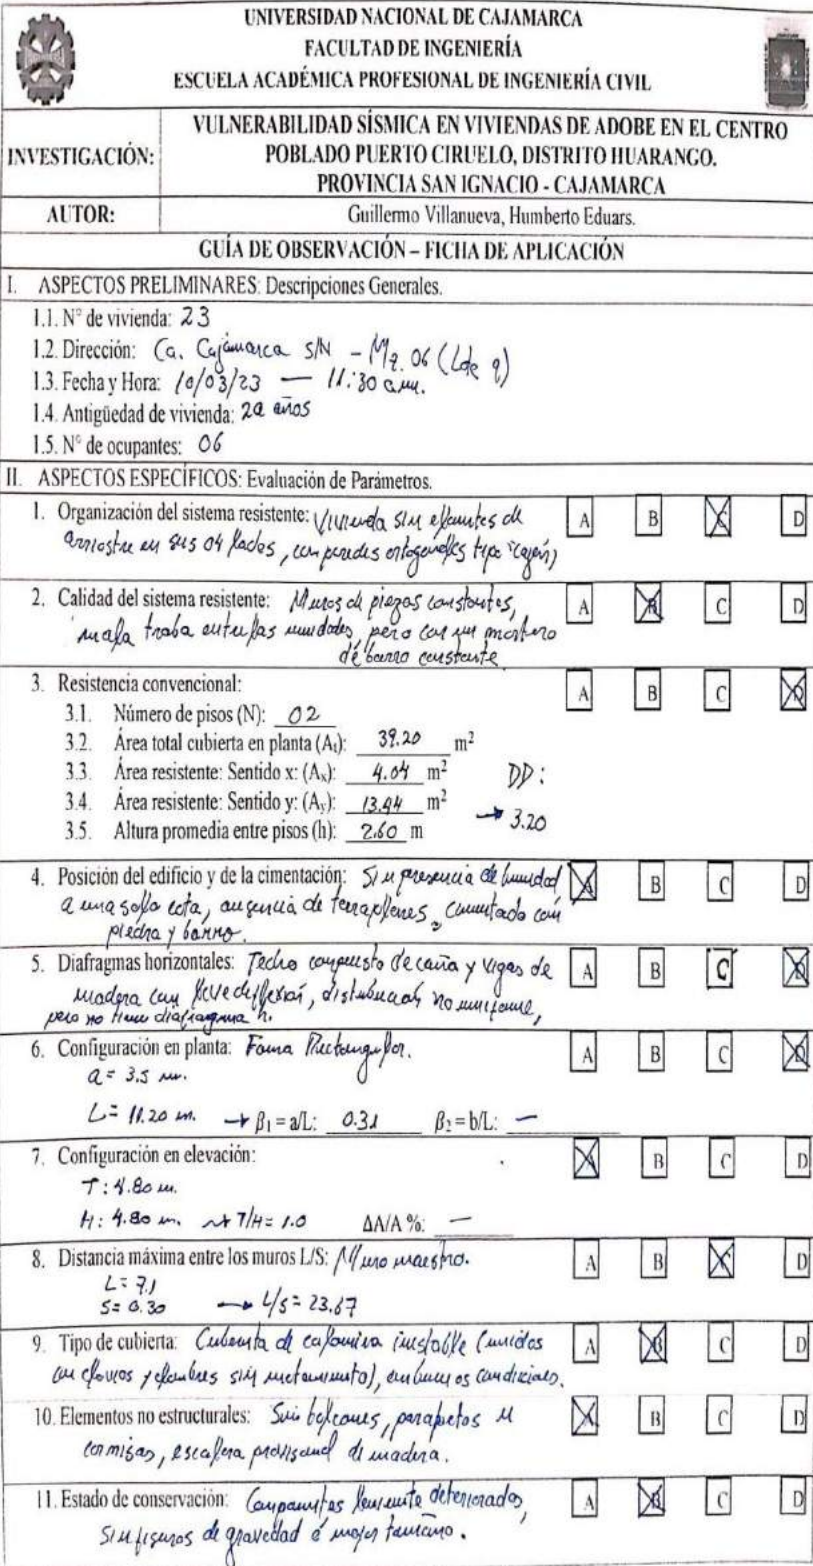 UNIVERSIDAD NACIONAL DE CAJAMARCA
FACULTAD DE INGENIERÍA
ESCUELA ACADÉMICA PROFESIONAL DE INGENIERÍA CIVIL
INVESTIGACIÓN:
VULNERABILIDAD SÍSMICA EN VIVIENDAS DE ADOBE EN EL CENTRO
POBLADO PUERTO CIRUELO, DISTRITO HUARANGO.
PROVINCIA SAN IGNACIO - CAJAMARCA
AUTOR: Guillermo Villanueva, Humberto Eduars.
GUÍA DE OBSERVACIÓN – FICHA DE APLICACIÓN
I. ASPECTOS PRELIMINARES: Descripciones Generales.
1.1. N° de vivienda: 23
1.2. Dirección: Ca. Cajamarca S/N - Mz. 06 (Lote 9)
1.3. Fecha y Hora: 10/03/23 — 11:30 a.m.
1.4. Antigüedad de vivienda: años
1.5. N° de ocupantes: 06
II. ASPECTOS ESPECÍFICOS: Evaluación de Parámetros.
1. Organización del sistema resistente: Vivienda sin elementos de A B C D
arriostre en sus 04 lados, con paredes ortogonales tipo "cajón)
2. Calidad del sistema resistente: Muros de piezas constantes, A B C D
mala traba entre las unidades, pero con un mortero
de barro constante
3. Resistencia convencional: A B C D
3.1. Número de pisos (N): 02
3.2. Área total cubierta en planta (At): 39.20 m²
3.3. Área resistente: Sentido x: (Ax): 4.04 m² DD:
3.4. Área resistente: Sentido y: (Ay): 13.44 m² → 3.20
3.5. Altura promedia entre pisos (h): 2.60 m
4. Posición del edificio y de la cimentación: Sin presencia de humedad A B C D
a una sola cota, ausencia de terraplenes, cimentado con
piedra y barro.
5. Diafragmas horizontales: Techo compuesto de caña y vigas de A B C D
madera con leve deflexión, distribución no uniforme,
pero no tiene diafragma h.
6. Configuración en planta: Forma Rectangular. A B C D
a = 3.5 m.
L = 11.20 m. → β1 = a/L: 0.31 β2 = b/L: —
7. Configuración en elevación: A B C D
T: 4.80 m.
H: 4.80 m. → T/H = 1.0 ΔA/A %: —
8. Distancia máxima entre los muros L/S: Muro maestro. A B C D
L = 7.1
S = 0.30 → L/S = 23.67
9. Tipo de cubierta: Cubierta de calamina inestable (unidos A B C D
con clavos y alambres sin), en buenas condiciones.
10. Elementos no estructurales: Sin balcones, parapetos ni A B C D
cornisas, escalera provisional de madera.
11. Estado de conservación: levemente deteriorados, A B C D
sin fisuras de gravedad o mayor tamaño.